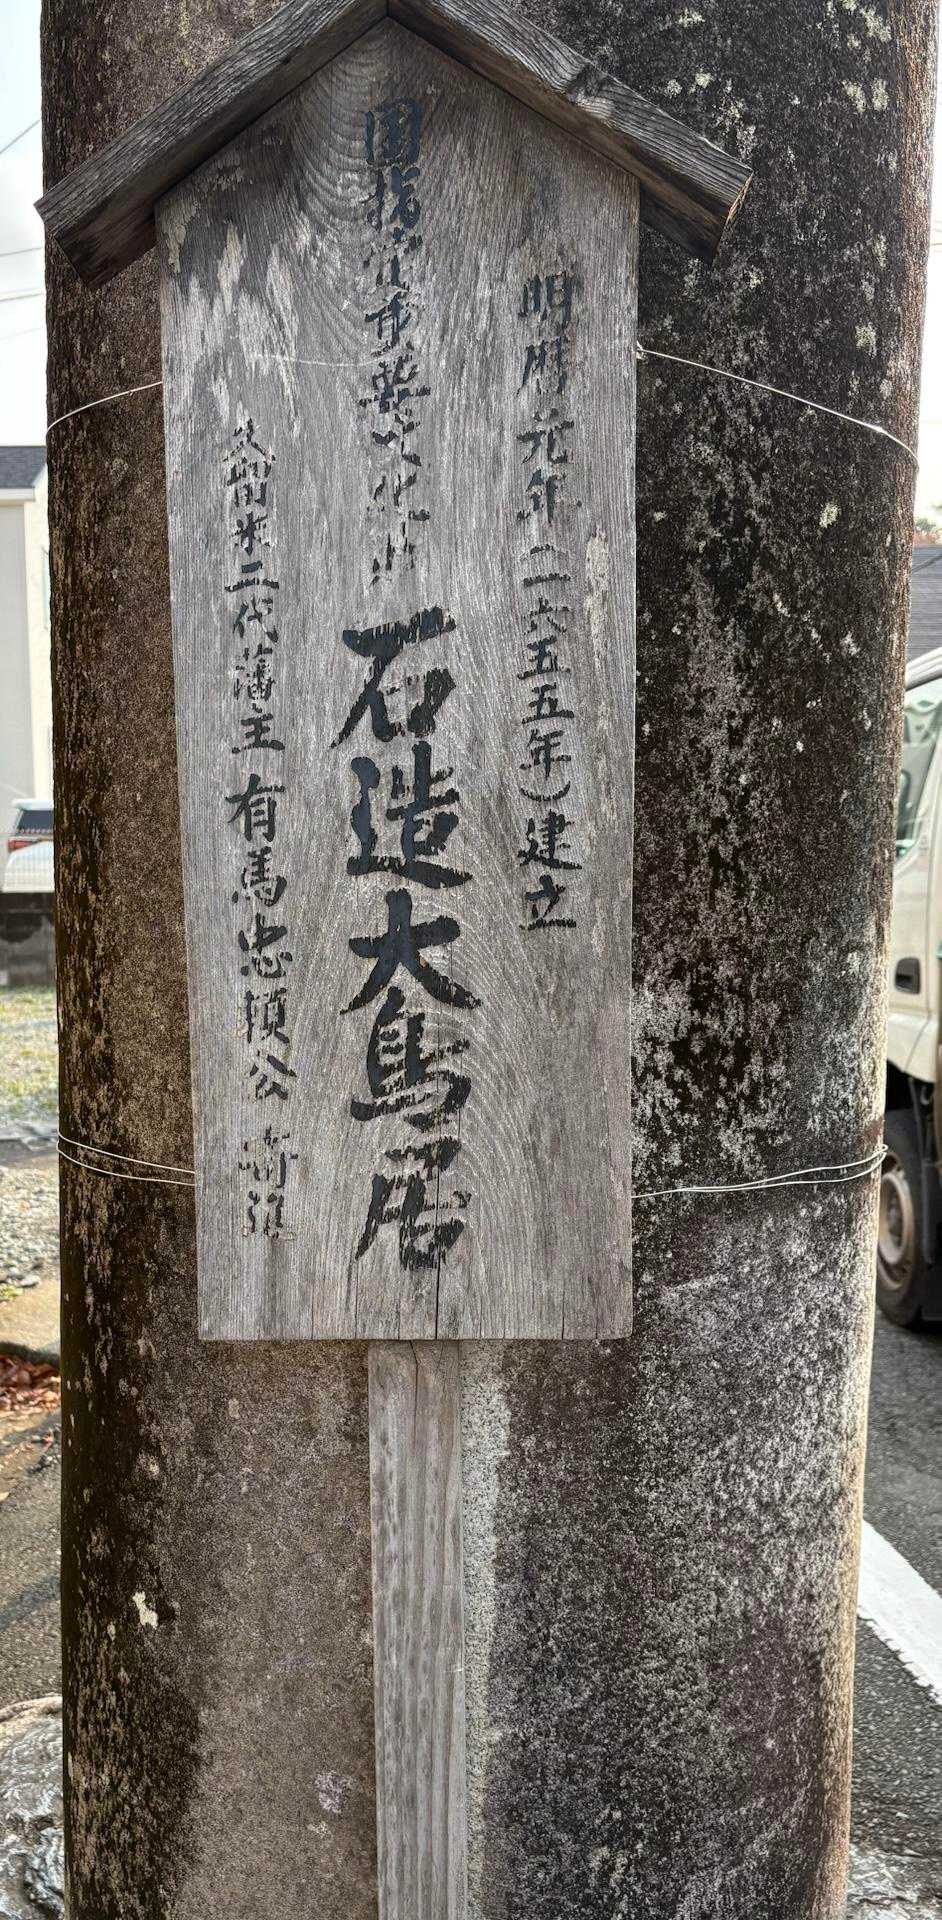 明暦元年(一六五五年)建立
国指定重要文化財 石造大鳥居
久留米二代藩主 有馬忠頼公 寄進